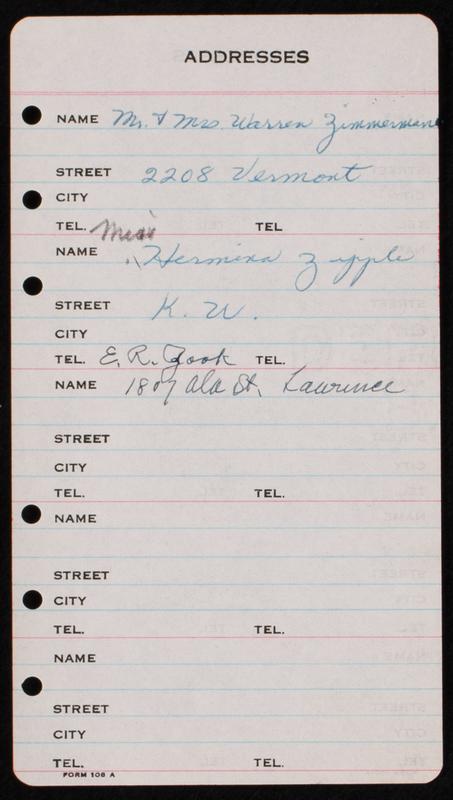 ADDRESSES
NAME Mr. & Mrs. Warren Zimmerman
STREET 2208 Vermont
CITY
TEL. TEL
Miss
NAME Hermina Zipple
STREET K. U.
CITY
TEL. E. R. Zook TEL.
NAME 1807 Ala St. Lawrence
STREET
CITY
TEL. TEL.
NAME
STREET
CITY
TEL. TEL.
NAME
STREET
CITY
TEL. TEL.
FORM 108 A